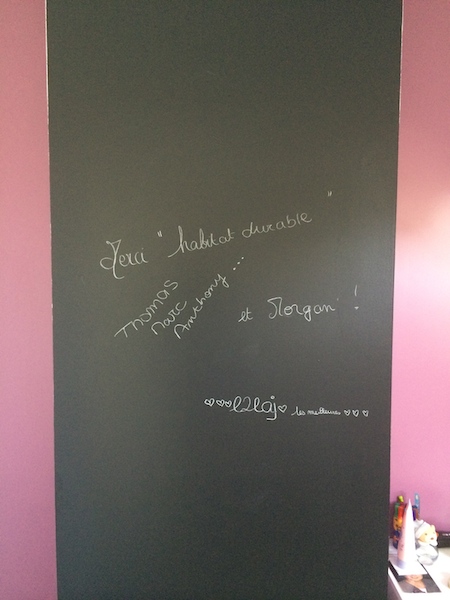 Merci "habitat durable"
Thomas
Marc
Anthony ...
et Morgan !
♡♡♡l2laj♡ les meilleures ♡♡♡